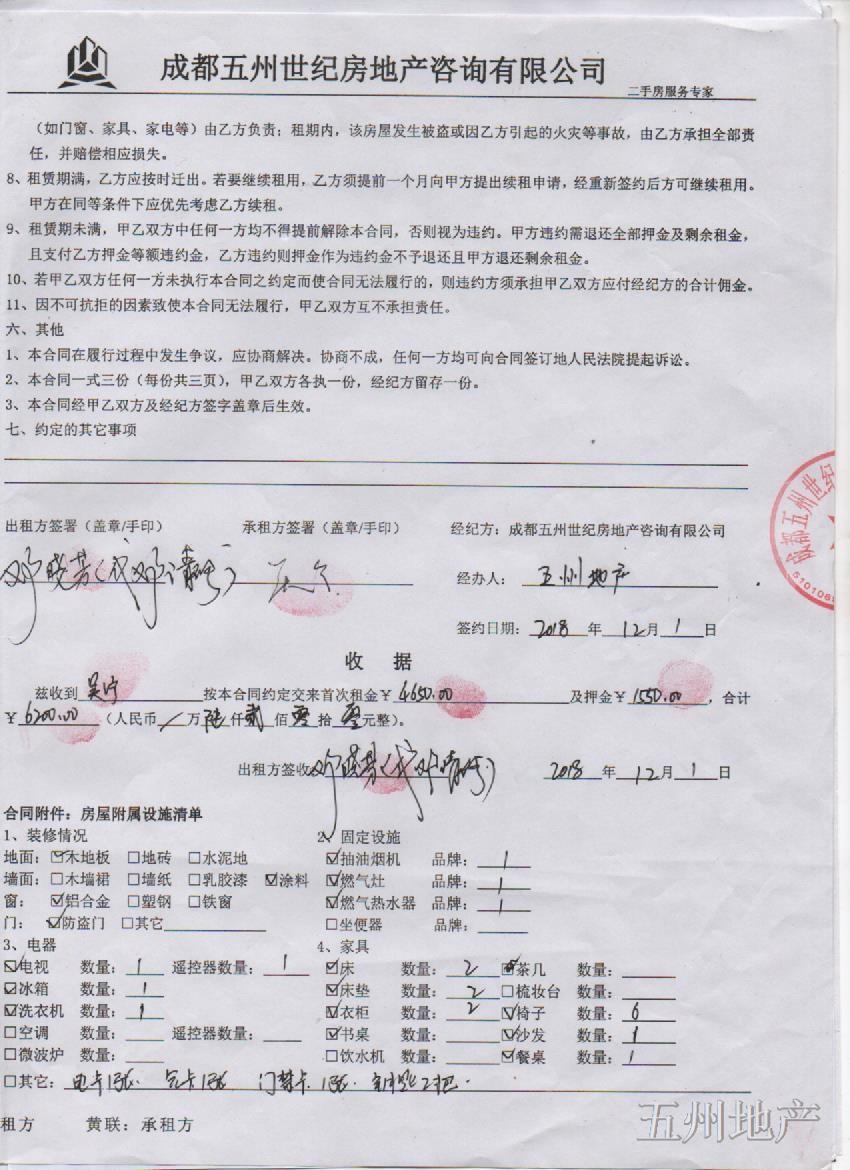 成都五州世纪房地产咨询有限公司
二手房服务专家
（如门窗、家具、家电等）由乙方负责；租期内，该房屋发生被盗或因乙方引起的火灾等事故，由乙方承担全部责
任，并赔偿相应损失。
8、租赁期满，乙方应按时迁出。若要继续租用，乙方须提前一个月向甲方提出续租申请，经重新签约后方可继续租用。
甲方在同等条件下应优先考虑乙方续租。
9、租赁期未满，甲乙双方中任何一方均不得提前解除本合同，否则视为违约。甲方违约需退还全部押金及剩余租金，
且支付乙方押金等额违约金，乙方违约则押金作为违约金不予退还且甲方退还剩余租金。
10、若甲乙双方任何一方未执行本合同之约定而使合同无法履行的，则违约方须承担甲乙双方应付经纪方的合计佣金。
11、因不可抗拒的因素致使本合同无法履行，甲乙双方互不承担责任。
六、其他
1、本合同在履行过程中发生争议，应协商解决。协商不成，任何一方均可向合同签订地人民法院提起诉讼。
2、本合同一式三份（每份共三页），甲乙双方各执一份，经纪方留存一份。
3、本合同经甲乙双方及经纪方签字盖章后生效。
七、约定的其它事项
成都五州世纪
510106
出租方签署（盖章/手印） 承租方签署（盖章/手印） 经纪方：成都五州世纪房地产咨询有限公司
邓晓芳（代邓 经办人：五州地产
签约日期：2018 年 12月 1 日
收 据
兹收到 吴宁 按本合同约定交来首次租金￥4650.00 及押金￥1550.00，合计
￥6200.00（人民币 / 万 陆 仟 贰 佰 零 拾 零 元整）。
出租方签收 邓晓芳（代邓 2018 年 12月 1 日
合同附件：房屋附属设施清单
1、装修情况 2、固定设施
地面：☑木地板 □地砖 □水泥地 ☑抽油烟机 品牌：1
墙面：□木墙裙 □墙纸 □乳胶漆 ☑涂料 ☑燃气灶 品牌：1
窗：☑铝合金 □塑钢 □铁窗 ☑燃气热水器 品牌：1
门：☑防盗门 □其它 □坐便器 品牌：
3、电器 4、家具
☑电视 数量：1 遥控器数量：1 ☑床 数量：2 ☑茶几 数量：
☑冰箱 数量：1 ☑床垫 数量：2 □梳妆台 数量：
☑洗衣机 数量：1 ☑衣柜 数量：2 ☑椅子 数量：6
□空调 数量： 遥控器数量： ☑书桌 数量： ☑沙发 数量：1
□微波炉 数量： □饮水机 数量： ☑餐桌 数量：1
□其它：电卡1张 气卡1张 门禁卡1张 钥匙2把.
租方 黄联：承租方
五州地产